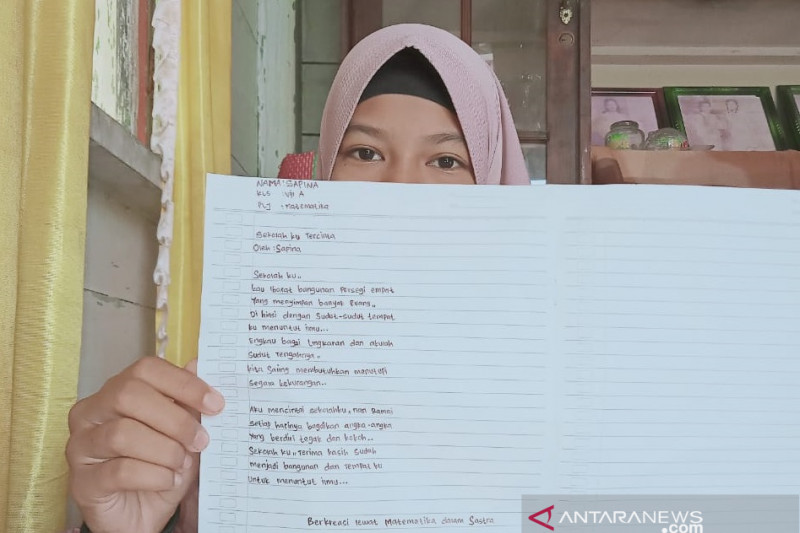 NAMA : SAPINA
KLS : VII A
PLJ : Matematika
Sekolah ku Tercinta
Oleh : Sapina
Sekolah ku..
kau ibarat bangunan Persegi empat
Yang menyimpan banyak Ruang,,
Di hiasi dengan Sudut-sudut tempat
ku menuntut ilmu...
Engkau bagai lingkaran dan akulah
Sudut Tengahnya..
kita Saling membutuhkan menutupi
Segala kekurangan...
Aku mencintai sekolahku, nan Ramai
setiap harinya bagaikan angka-angka
Yang berdiri tegak dan kokoh...
Sekolah ku,, Terima kasih Sudah
menjadi bangunan dan tempat ku
Untuk menuntut ilmu...
Berkreasi lewat Matematika dalam Sastra
ANTARANEWS
.com